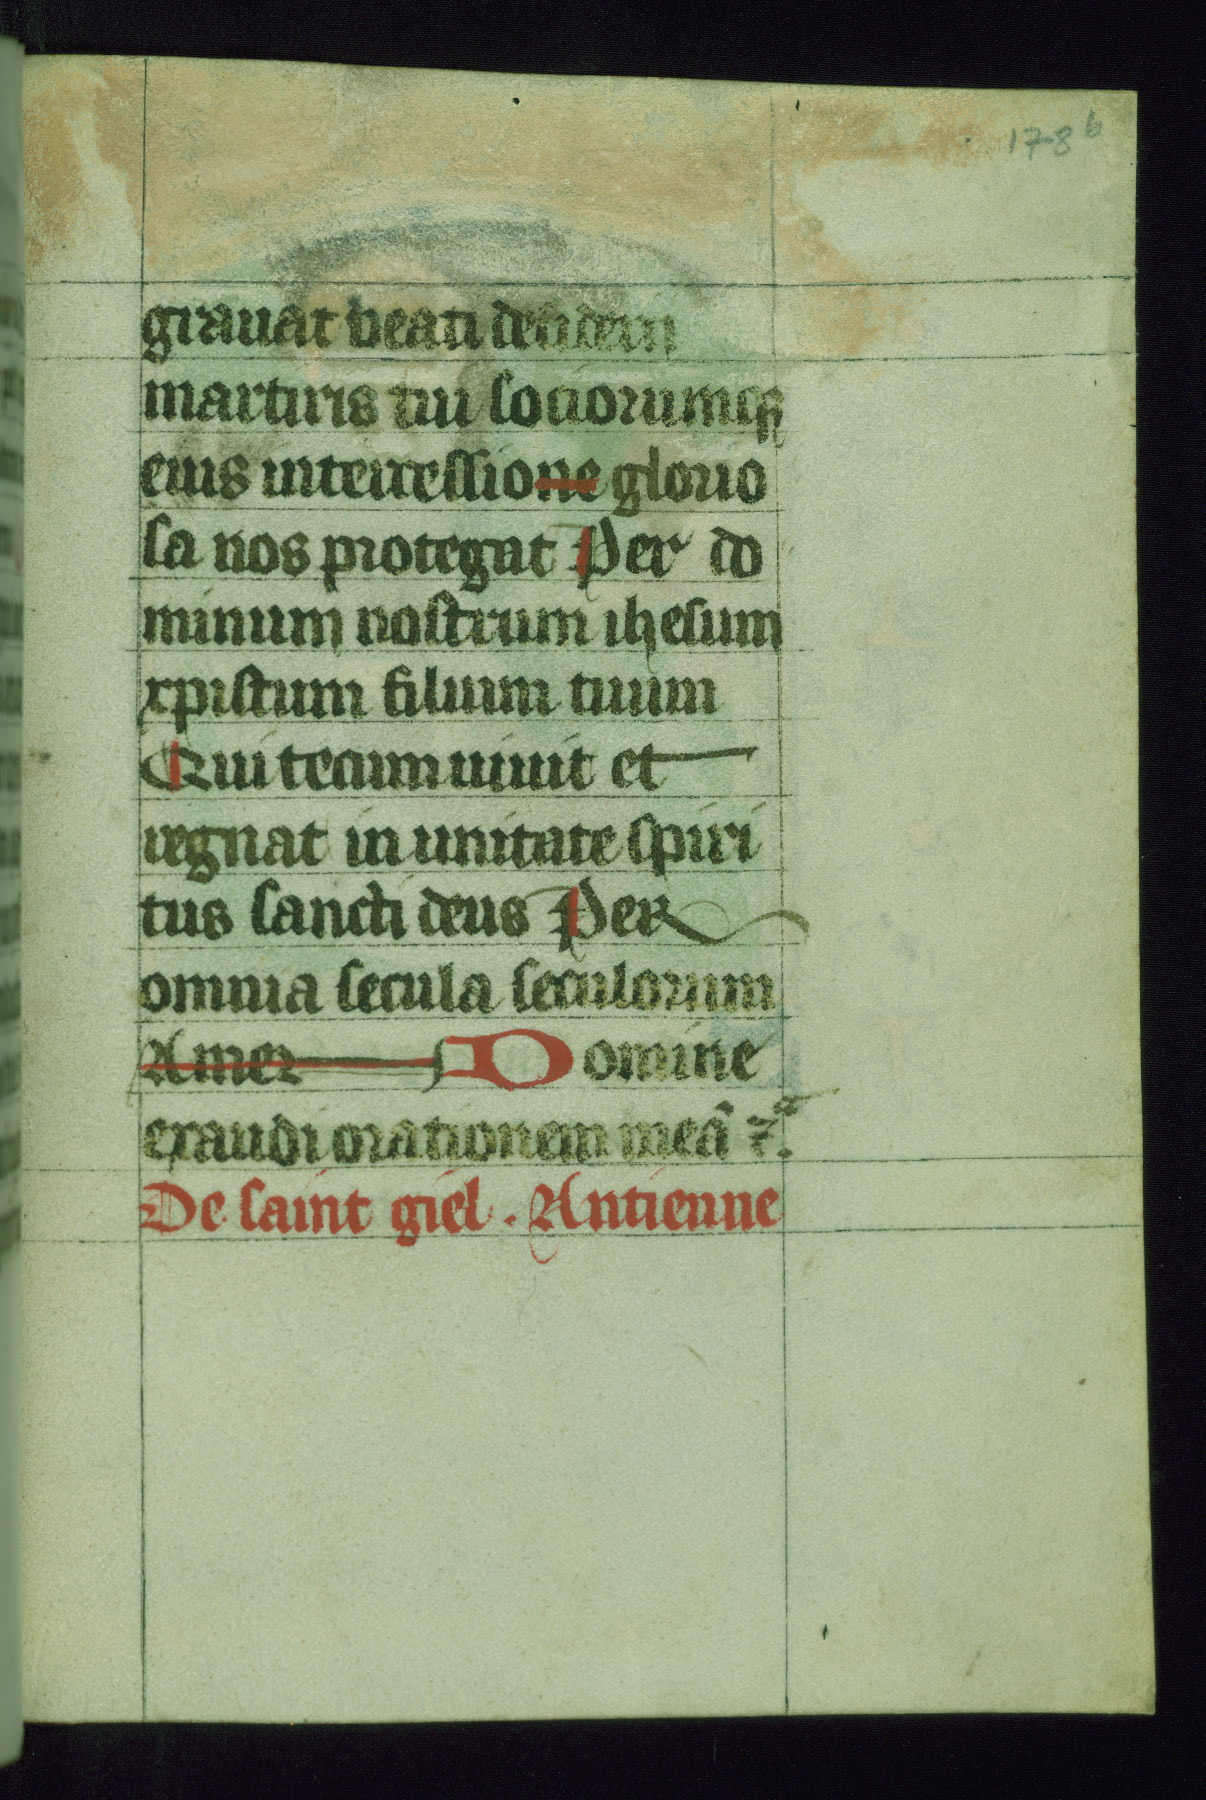 178b
grauat beati desiderii
martiris tui sociorumqꝫ
eius intercessione glorio
sa nos protegat Per do
minum nostrum ihesum
xpistum filium tuum
Qui tecum uiuit et
regnat in unitate spiri
tus sancti deus Per
omnia secula seculorum
Amen Domine
exaudi orationem meã ⁊.a
De saint giel . Antienne